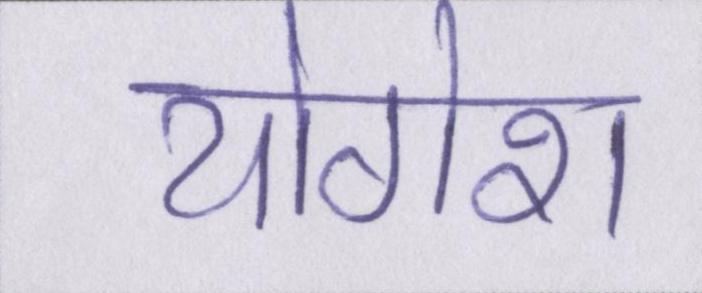 योगेश